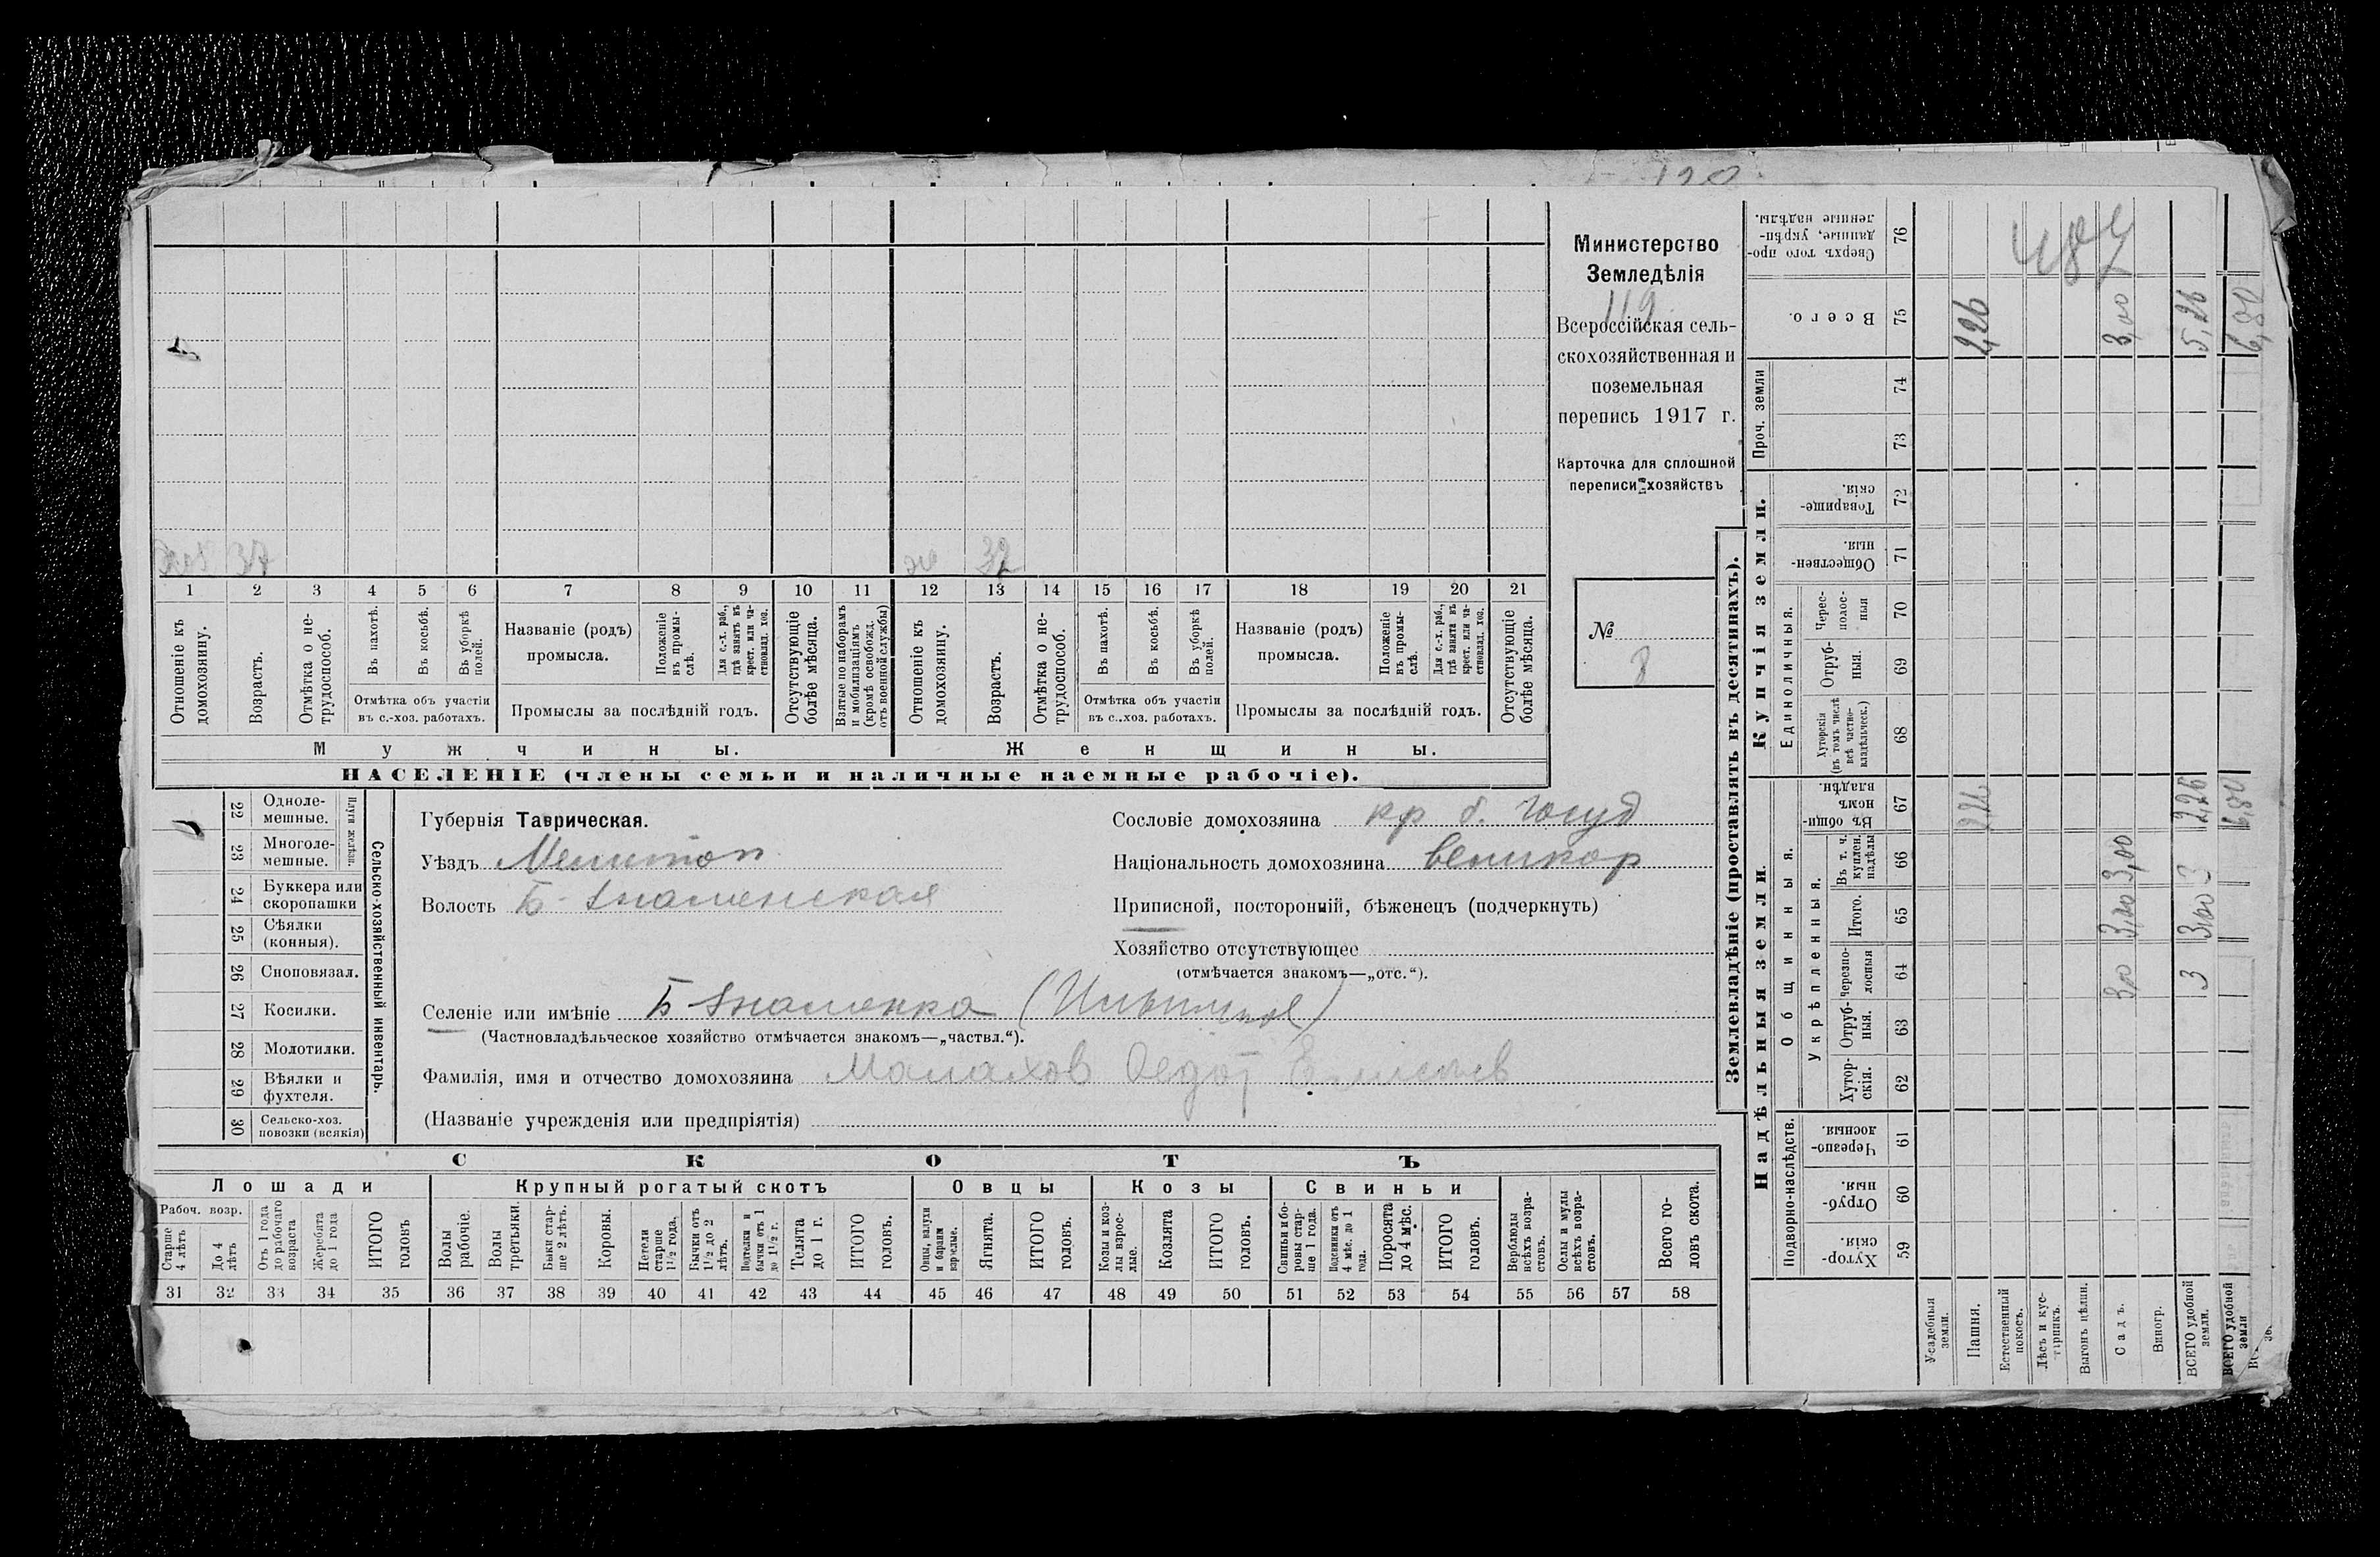 190
Министерство
Земледѣлія
119
Всероссійская сель-
скохозяйственная и
поземельная
перепись 1917 г.
Карточка для сплошной
переписи хозяйствъ
№
8
хоз 37
ж 32
1 2 3 4 5 6 7 8 9 10 11 12 13 14 15 16 17 18 19 20 21
Отношеніе къ домохозяину.
Возрастъ.
Отмѣтка о не-трудоспособ.
Въ пахотѣ.
Въ косьбѣ.
Въ уборкѣ полей.
Отмѣтка объ участіи
въ с.-хоз. работахъ.
Названіе (родъ)
промысла.
Положеніе въ промы-слѣ.
Для с.-х. раб., гдѣ занятъ въ крест. или ча-стновлад. хоз.
Промыслы за послѣдній годъ.
Отсутствующіе болѣе мѣсяца.
Взятые по наборамъ и мобилизаціямъ (кромѣ освобожд. отъ военной службы)
Отношеніе къ домохозяину.
Возрастъ.
Отмѣтка о не-трудоспособ.
Въ пахотѣ.
Въ косьбѣ.
Въ уборкѣ полей.
Отмѣтка объ участіи
въ с.-хоз. работахъ.
Названіе (родъ)
промысла.
Положеніе въ промы-слѣ.
Для с.-х. раб., гдѣ занята въ крест. или ча-стновлад. хоз.
Промыслы за послѣдній годъ.
Отсутствующіе болѣе мѣсяца.
Мужчины.
Женщины.
НАСЕЛЕНІЕ (члены семьи и наличные наемные рабочіе).
22 Одноле-мешные.
23 Многоле-мешные.
Плуги желѣзн.
24 Буккера или скоропашки
25 Сѣялки (конныя).
26 Сноповязал.
27 Косилки.
28 Молотилки.
29 Вѣялки и фухтеля.
30 Сельско-хоз. повозки (всякія)
Сельско-хозяйственный инвентарь.
Губернія Таврическая.
Уѣздъ Мелитоп
Волость Б-Знаменская
Сословіе домохозяина кр б. госуд
Національность домохозяина великор
Приписной, посторонній, бѣженецъ (подчеркнуть)
Хозяйство отсутствующее
(отмѣчается знакомъ—„отс.“).
Селеніе или имѣніе Б Знаменка
(Частновладѣльческое хозяйство отмѣчается знакомъ—„частвл.“).
Фамилія, имя и отчество домохозяина Малахов Федот
(Названіе учрежденія или предпріятія)
СКОТЪ
Лошади
Крупный рогатый скотъ
Овцы
Козы
Свиньи
Рабоч. возр.
Старше 4 лѣтъ
До 4 лѣтъ
Отъ 1 года до рабочаго возраста
Жеребята до 1 года
ИТОГО головъ
Волы рабочіе.
Волы третьяки.
Быки стар-ше 2 лѣтъ.
Коровы.
Нетели старше 1½ года.
Бычки отъ 1½ до 2 лѣтъ.
Нетелки и бычки отъ 1 до 1½ г.
Телята до 1 г.
ИТОГО головъ.
Овцы, валухи и бараны взрослые.
Ягнята.
ИТОГО головъ.
Козы и коз-лы взрос-лые.
Козлята
ИТОГО головъ.
Свиньи и бо-ровы стар-ше 1 года.
Подсвинки отъ 4 мѣс. до 1 года.
Поросята до 4 мѣс.
ИТОГО головъ.
Верблюды всѣхъ возра-стовъ.
Ослы и мулы всѣхъ возра-стовъ.
Всего го-ловъ скота.
31 32 33 34 35 36 37 38 39 40 41 42 43 44 45 46 47 48 49 50 51 52 53 54 55 56 57 58
Землевладѣніе (проставлять въ десятинахъ).
Купчія земли.
Надѣльныя земли.
Проч. земли
Единоличныя.
Общинныя.
Укрѣпленныя.
Подворно-наслѣдств.
76 Сверхъ того про-данные, укрѣп-ленные надѣлы.
75 Всего.
74
73
72 Товарище-скія.
71 Обществен-ныя
70 Черес-полос-ныя
69 Отруб-ныя.
68 Хуторскія (въ томъ числѣ всѣ частно-владѣльческ.)
67 Въ общи-номъ владѣн.
66 Въ т. ч. куплен. надѣлы
65 Итого.
64 Черезпо-лосныя
63 Отруб-ныя.
62 Хутор-скія.
61 Черезпо-лосныя.
60 Отруб-ныя.
59 Хутор-скія.
Усадебныя земли.
Пашня. 2,26 2,26
Естественный покосъ.
Лѣсъ и кус-тарникъ.
Выгонъ цѣлин.
Садъ. 3,00 3,00 3,00 3,00
Виногр.
ВСЕГО удобной земли. 3 3,00 3 2,26 5,26
ВСЕГО удобной земли 6,80 6,80